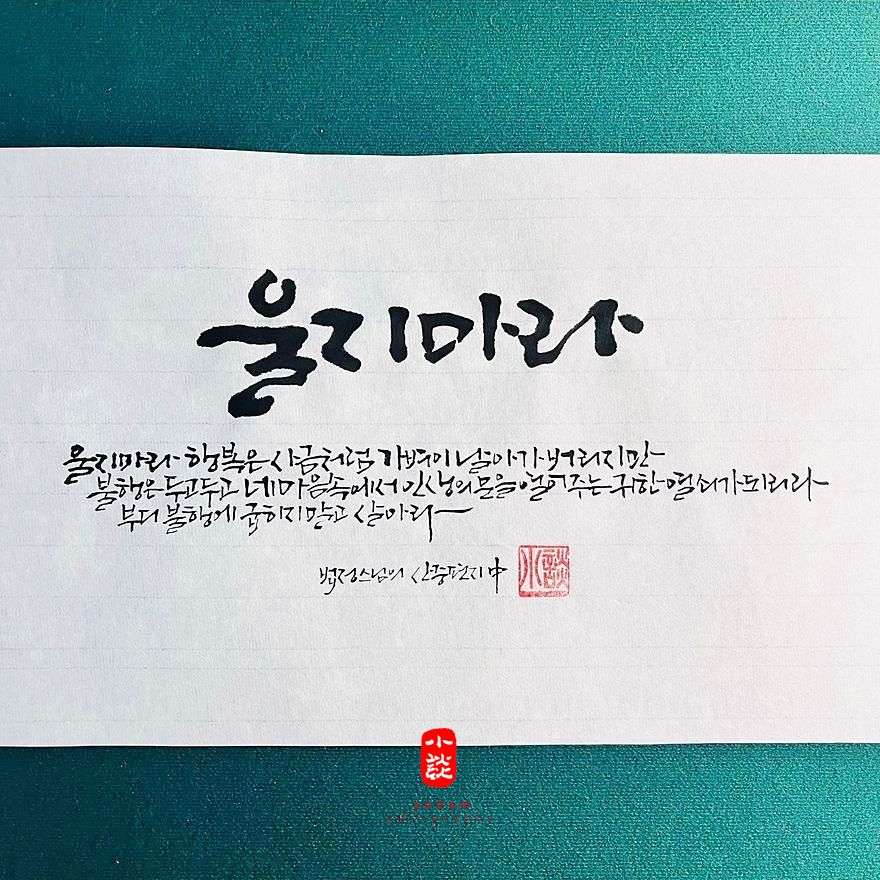 울지마라
울지마라 행복은 사금처럼 가벼이 날아가 버리지만
불행은 두고두고 네 마음 속에서 인생의 문을 열어주는 귀한 열쇠가 되리라
부디 불행에 굽히지 말고 살아라
법정스님의 산중편지 中
小談
小談